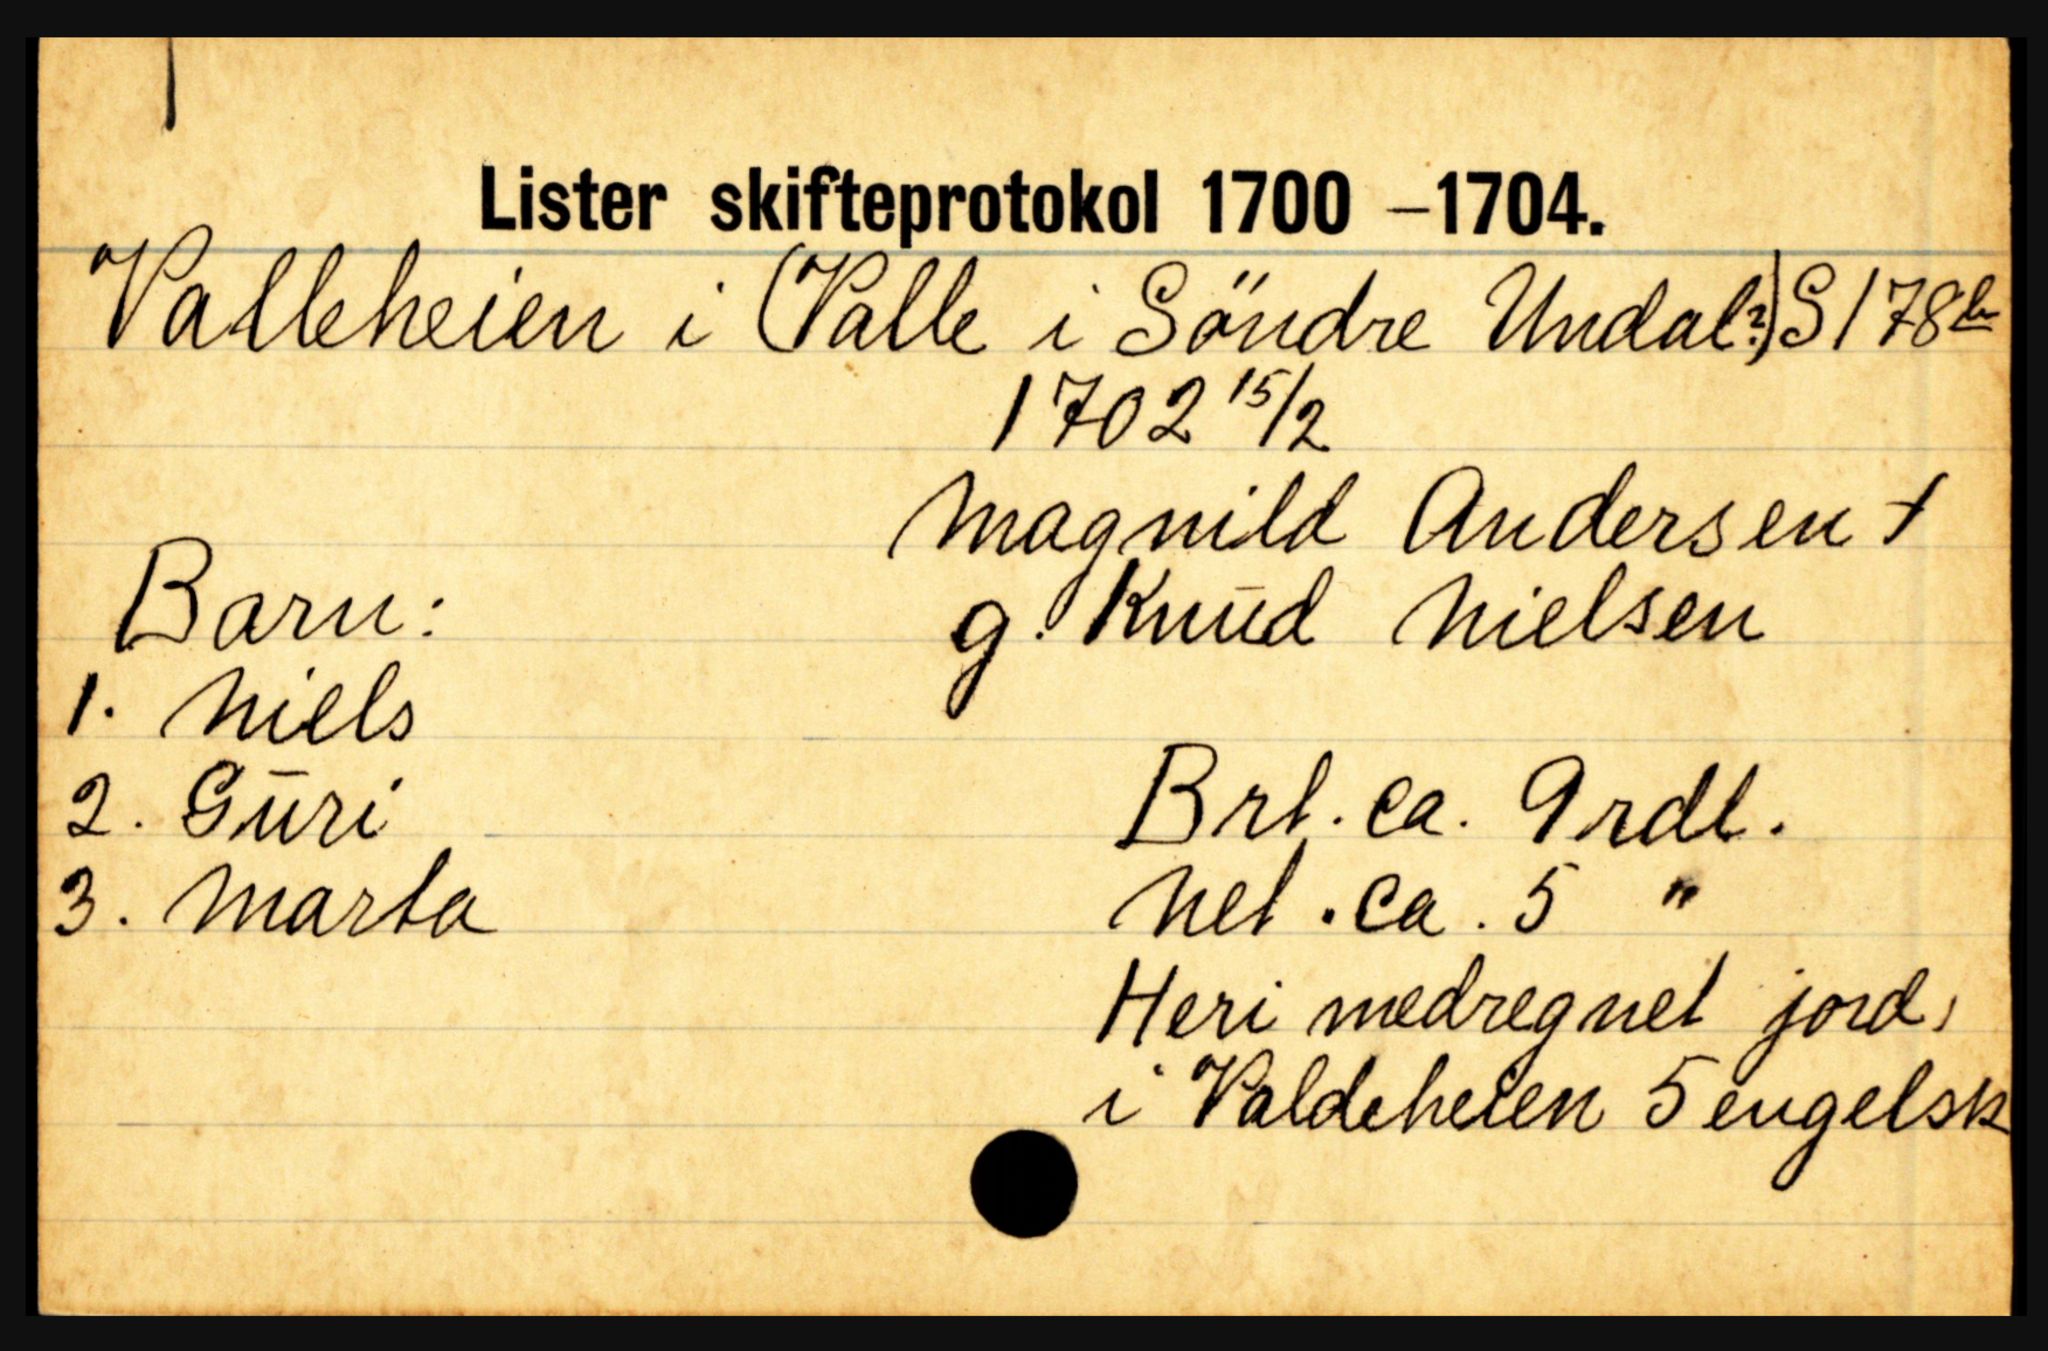 Lister skifteprotokol 1700 – 1704.
Valleheien i (Valle i Söndre Undal?) S 178b
1702 15/2
Magnild Andersen †
g. Knud Nielsen
Barn:
1. Niels
2. Guri
3. Marta
Brt. ca. 9 rdl.
Net. ca. 5 "
Heri medregnet jord,
i Valdeheien 5 engelsk